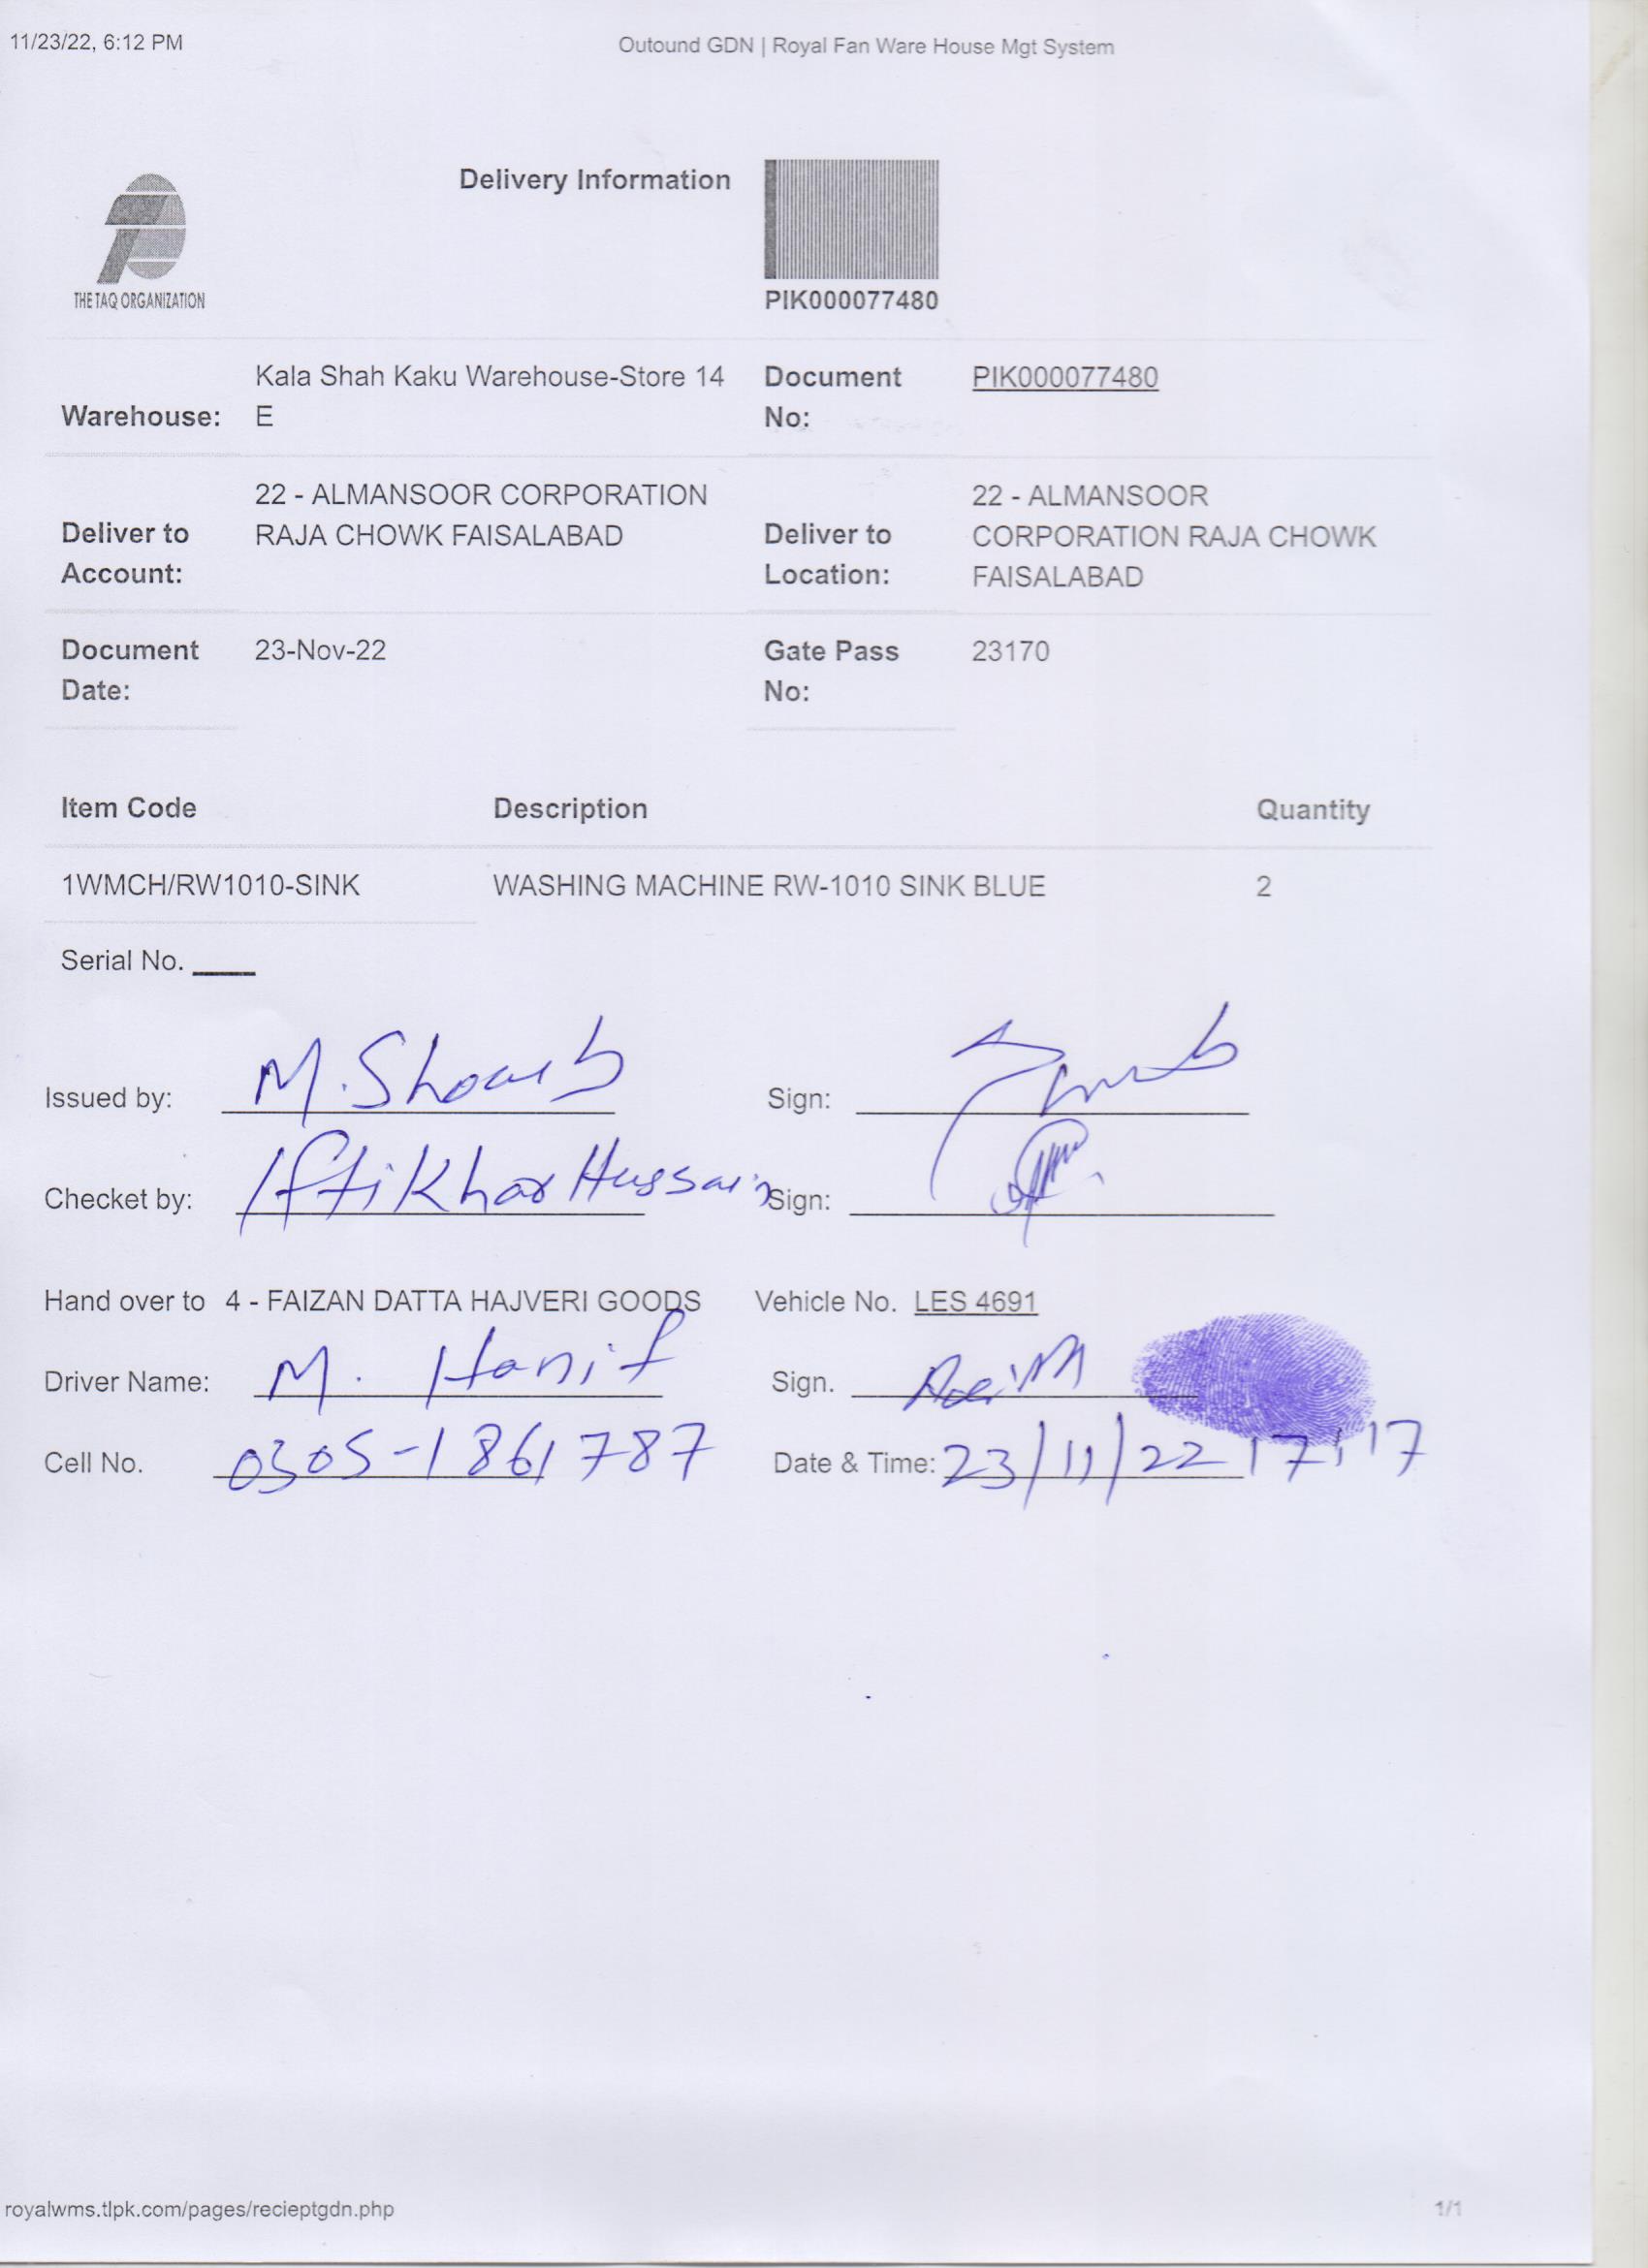 11/23/22, 6:12 PM
Outound GDN | Royal Fan Ware House Mgt System
Delivery Information
THE TAQ ORGANIZATION
PIK000077480
Warehouse: Kala Shah Kaku Warehouse-Store 14 E
Document No: PIK000077480
Deliver to Account: 22 - ALMANSOOR CORPORATION RAJA CHOWK FAISALABAD
Deliver to Location: 22 - ALMANSOOR CORPORATION RAJA CHOWK FAISALABAD
Document Date: 23-Nov-22
Gate Pass No: 23170
Item Code Description Quantity
1WMCH/RW1010-SINK WASHING MACHINE RW-1010 SINK BLUE 2
Serial No.
Issued by: M. Shoaib Sign:
Checket by: Iftikhar Hussain Sign:
Hand over to 4 - FAIZAN DATTA HAJVERI GOODS Vehicle No. LES 4691
Driver Name: M. Hanif Sign.
Cell No. 0305-1861787 Date & Time: 23/11/22 17:17
royalwms.tlpk.com/pages/recieptgdn.php
1/1